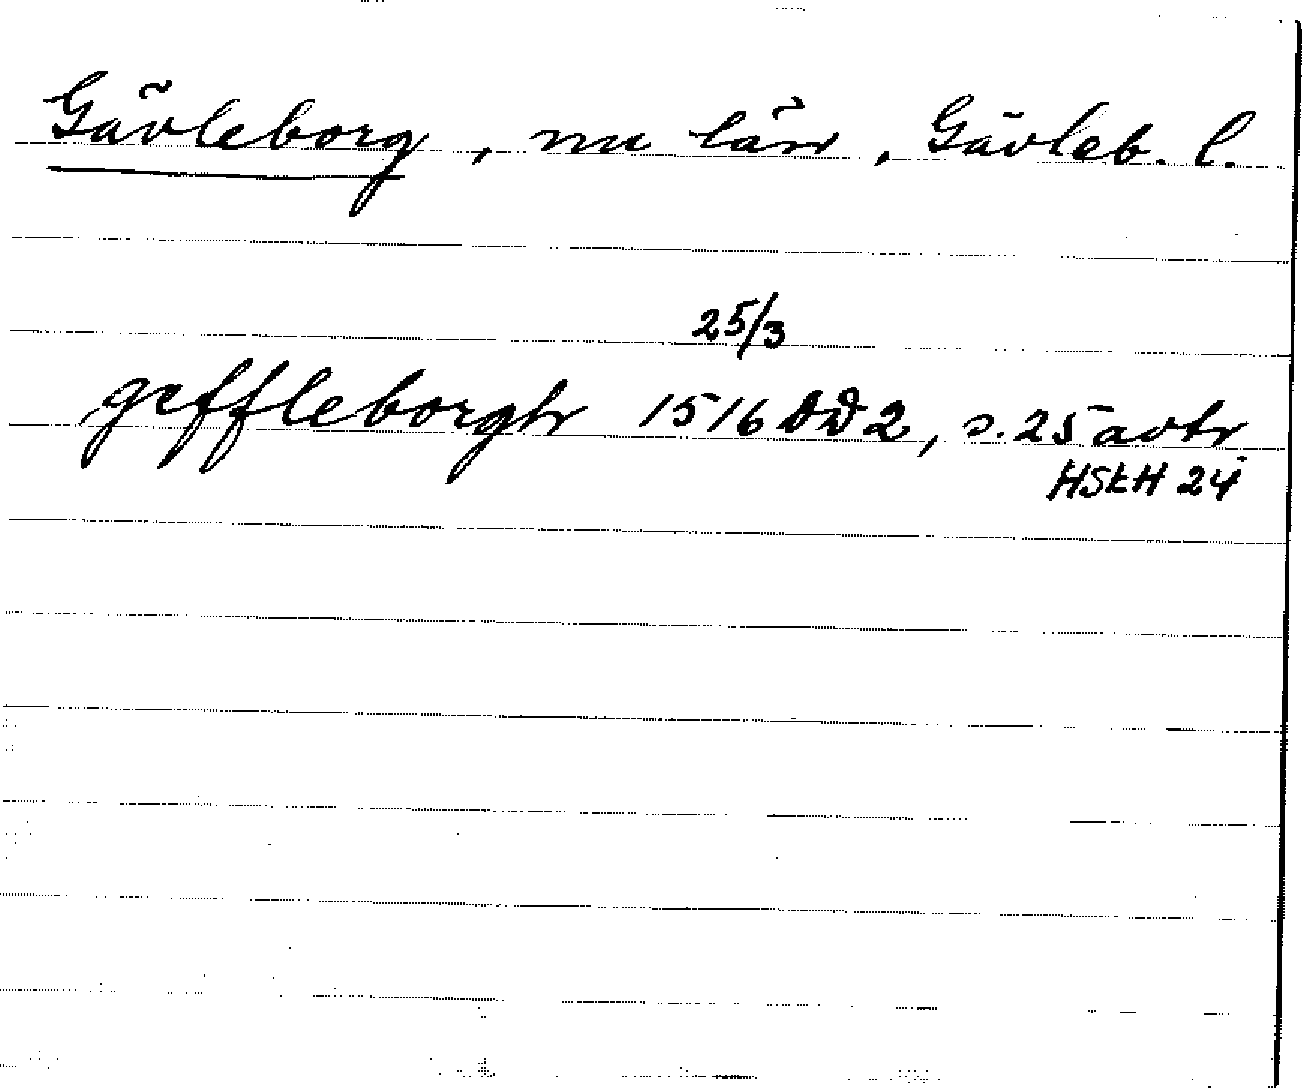 Gävleborg, nu län, Gävleb. l.
25/3
geffleborgh 1516 DD2, s. 25 avtr
HSkH 24